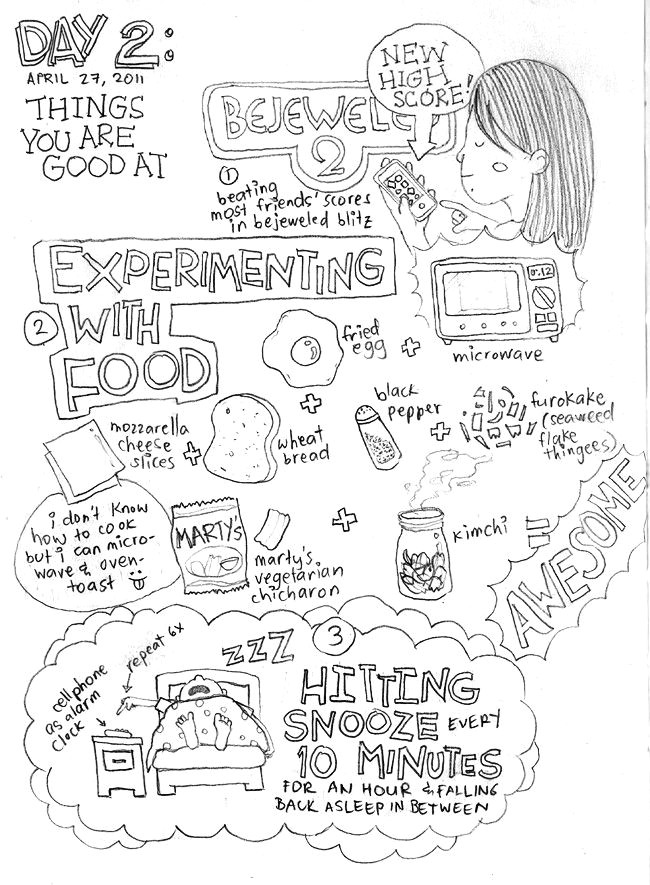 DAY 2:
APRIL 27, 2011
THINGS
YOU ARE
GOOD AT
NEW
HIGH
SCORE!
BEJEWELE
2
1
beating
most friends' scores
in bejeweled blitz
2
EXPERIMENTING
WITH
FOOD
0:12
microwave
fried
egg
+
+
mozzarella
cheese
slices
+
wheat
bread
black
pepper
+
furokake
(seaweed
flake
thingees)
i don't know
how to cook
but i can micro-
wave & oven-
toast
MARTY'S
marty's
vegetarian
chicharon
+
kimchi
=
AWESOME
3
ZZZ
repeat 6x
cellphone
as alarm
clock
HITTING
SNOOZE EVERY
10 MINUTES
FOR AN HOUR & FALLING
BACK ASLEEP IN BETWEEN